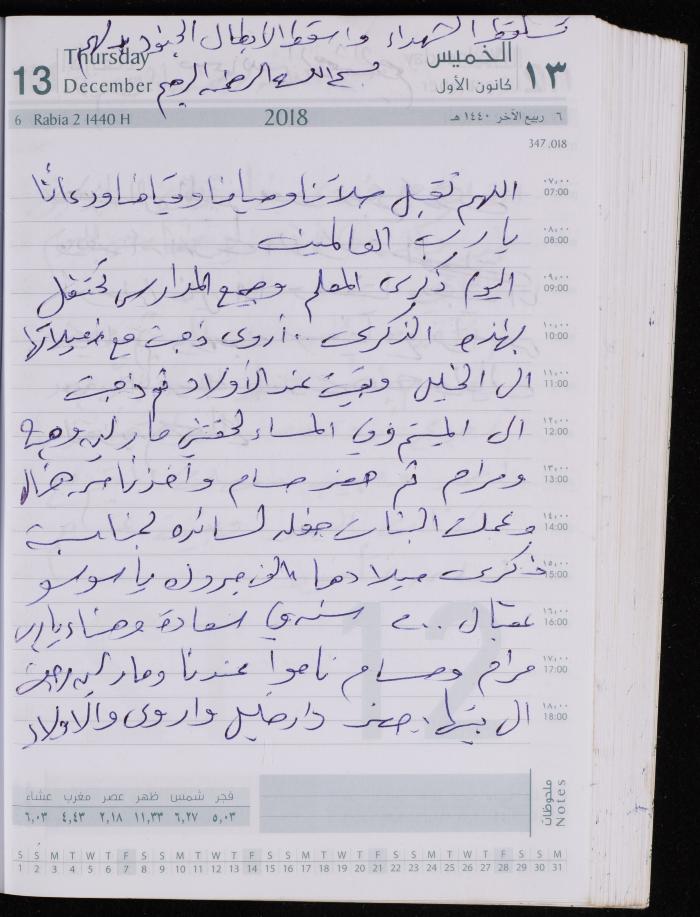 الشهداء واسقط الابطال الجنود
بسم الله الرحمن الرحيم
13 Thursday December
الخميس ١٣ كانون الأول
6 Rabia 2 1440 H 2018 ٦ ربيع الآخر ١٤٤٠ هـ
347 .018
اللهم تقبل صلاتنا وصيامنا وقيامنا ودعائنا
٠٧:٠٠ 07:00
يا رب العالمين
٠٨:٠٠ 08:00
اليوم ذكرى المعلم وجميع المدارس تحتفل
٠٩:٠٠ 09:00
بهذه الذكرى .. أروى ذهبت مع زميلاتها
١٠:٠٠ 10:00
الى الخليل وبقيت عند الأولاد ثم ذهبت
١١:٠٠ 11:00
الى الميتم وفي المساء لحقتني مارلين
١٢:٠٠ 12:00
ومرام ثم حضر حسام وأخذنا من هناك
١٣:٠٠ 13:00
وعملت البنات حفله لسائده بمناسبة
١٤:٠٠ 14:00
ذكرى ميلادها يا سوسو
١٥:٠٠ 15:00
عقبال ٠٠ سنة في سعادة وهناء يا رب
١٦:٠٠ 16:00
مرام وحسام ناموا عندنا ومارلين رجعت
١٧:٠٠ 17:00
الى بيتها. حضر دار خليل واروى والاولاد
١٨:٠٠ 18:00
فجر شمس ظهر عصر مغرب عشاء
٥,٠٣ ٦,٢٧ ١١,٣٣ ٢,١٨ ٤,٤٣ ٦,٠٣
ملحوظات Notes
S S M T W T F S S M T W T F S S M T W T F S S M T W T F S S M
1 2 3 4 5 6 7 8 9 10 11 12 13 14 15 16 17 18 19 20 21 22 23 24 25 26 27 28 29 30 31